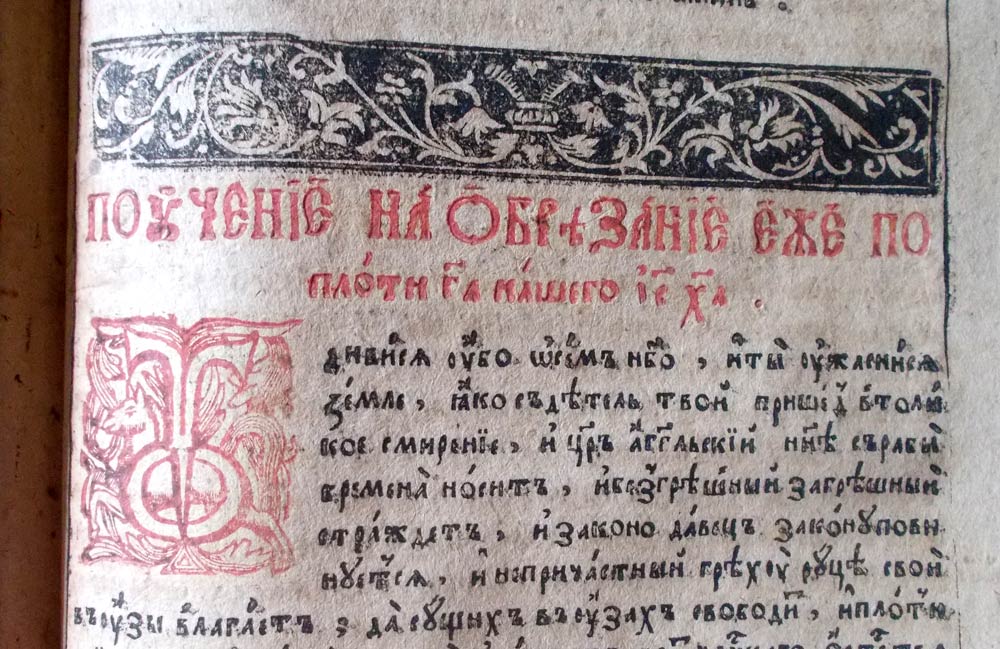 ПОꙊЧЕНІЕ НА́ ѺБРѢЗА́НІЕ Е́ЖЕ ПО
пло́ти г҃а на́шего і҃с х҃а .
Ꙋдиви́сѧ оу҆бо ѡсе́мъ нб҃о , и҆ ты̀ оу҆жасни́сѧ
земле , ꙗ҆ко съдѣ́тель твой прише́д в толи́
кое смире́ніе , и҆ цр҃ь а҆гг҃льскій нн҃ѣ съ рабы̀
времена̀ но́ситъ , и҆ безгрѣ́шный за грѣ́шныѧ
стра́ждетъ , и҆ законо да́вецъ зако́ну пови
нꙋетсѧ , и҆ непричастный грѣхоу̀ рꙋцѣ̀ свои̑
въ оу҆́зы влага́етъ , да̀ сꙋщихъ въ оу҆́захъ свободит , и҆ пло́тїю